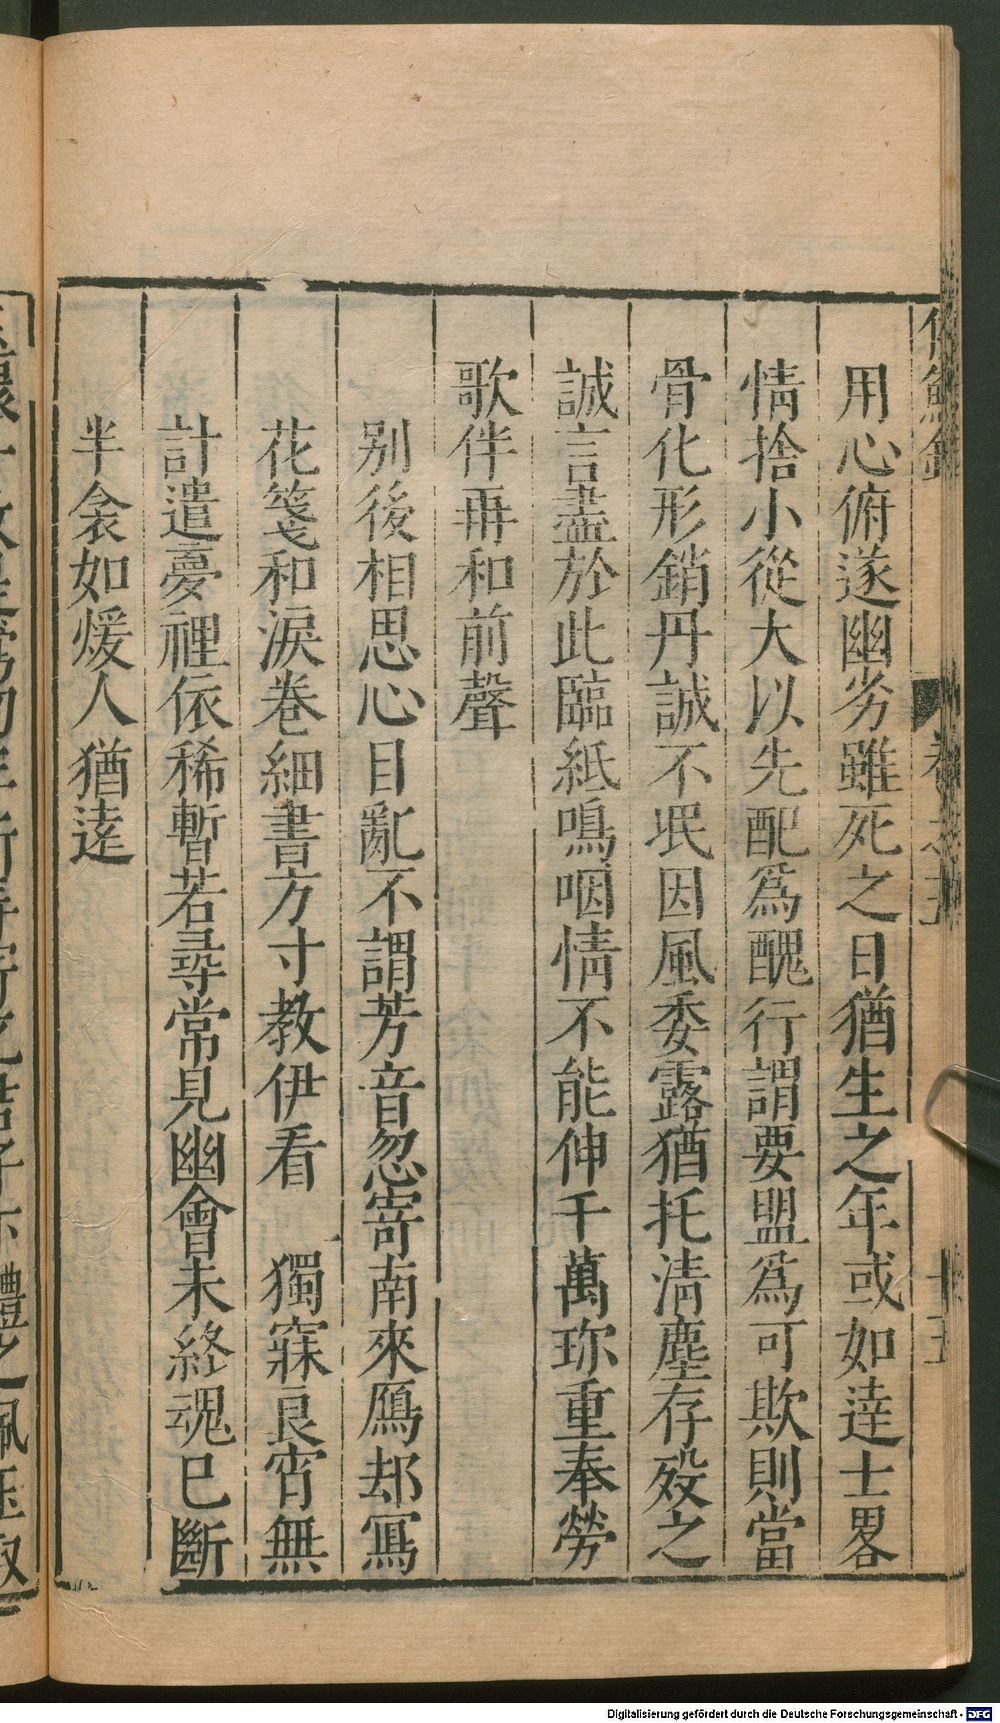 用心俯遂幽劣雖死之日猶生之年或如達士畧
情捨小從大以先配爲醜行謂要盟爲可欺則當
骨化形銷丹誠不泯因風委露猶托清塵存殁之
誠言盡於此臨紙鳴咽情不能伸千萬珎重奉勞
歌伴再和前聲
別後相思心目亂不謂芳音忽寄南來鴈却冩
花箋和淚卷細書方寸教伊看　獨寐良宵無
計遣夢裡依稀暫若尋常見幽會未終魂已斷
半衾如煖人猶遠
Digitalisierung gefördert durch die Deutsche Forschungsgemeinschaft - DFG